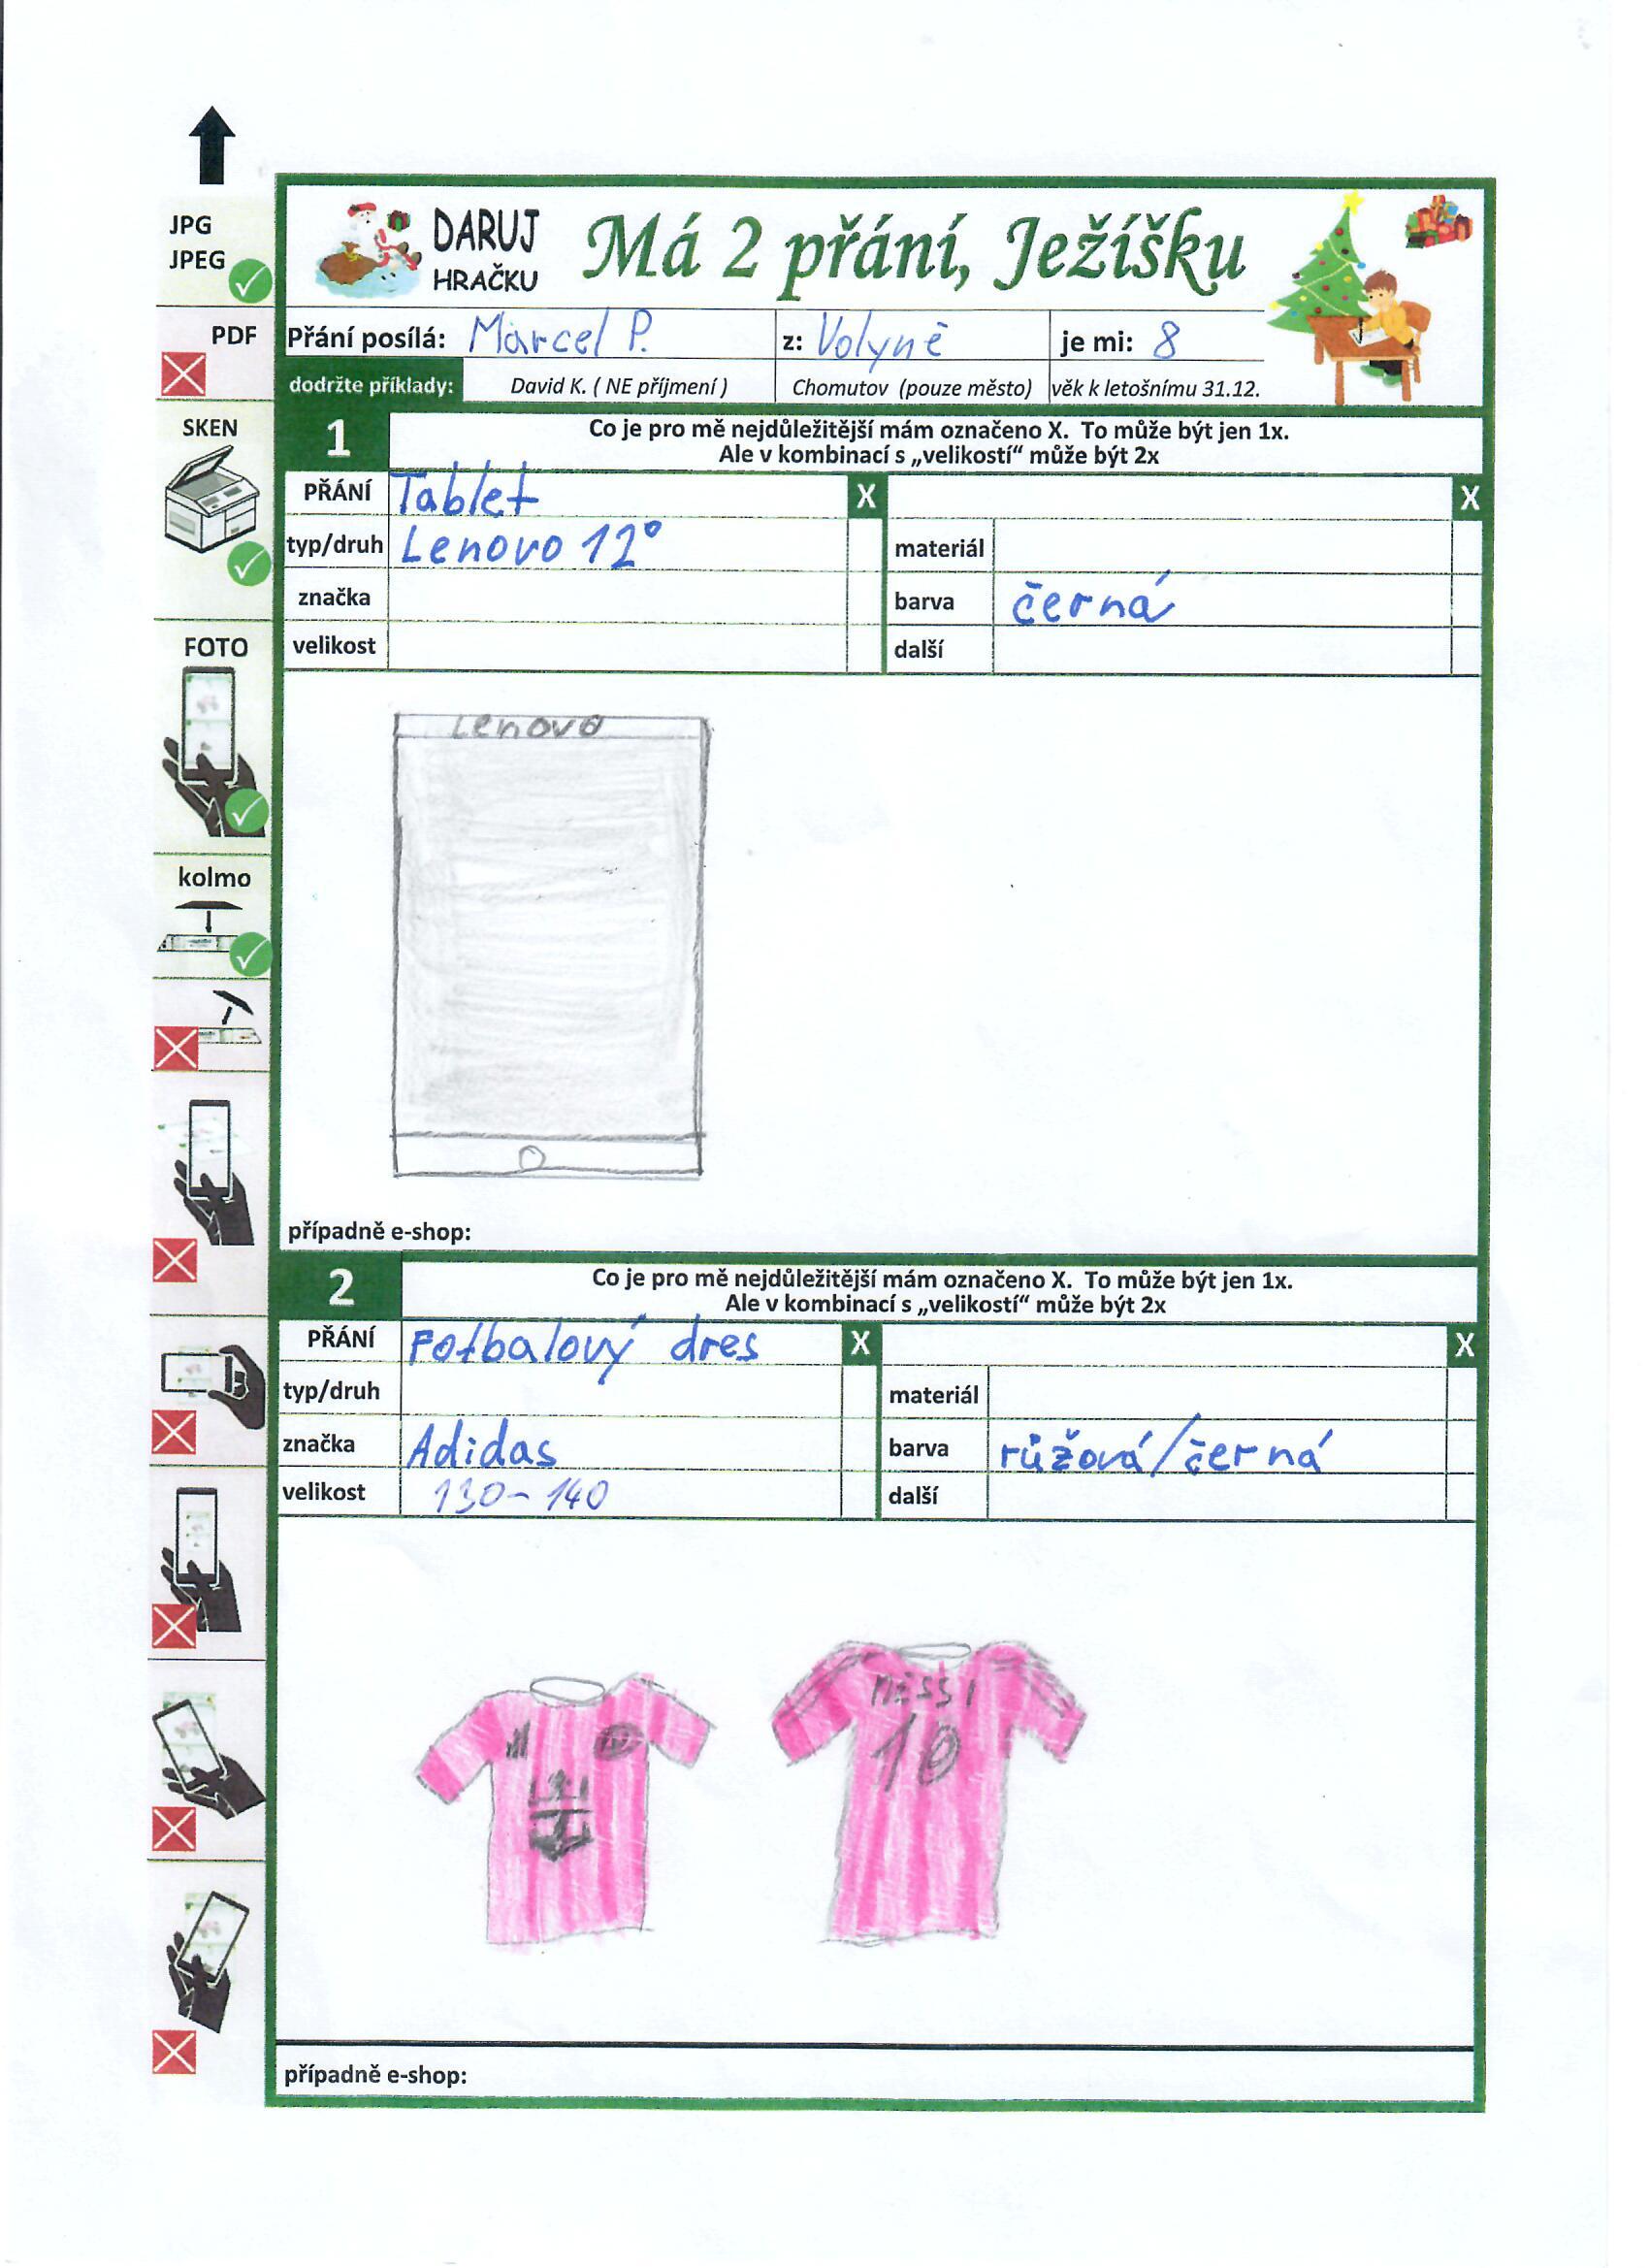 JPG
JPEG
PDF
SKEN
FOTO
kolmo
DARUJ
HRAČKU
Má 2 přání, Ježíšku
Přání posílá: Marcel P. z: Volyně je mi: 8
dodržte příklady: David K. ( NE příjmení ) Chomutov (pouze město) věk k letošnímu 31.12.
1 Co je pro mě nejdůležitější mám označeno X. To může být jen 1x.
Ale v kombinací s „velikostí“ může být 2x
PŘÁNÍ Tablet X X
typ/druh Lenovo 12° materiál
značka barva černá
velikost další
Lenovo
případně e-shop:
2 Co je pro mě nejdůležitější mám označeno X. To může být jen 1x.
Ale v kombinací s „velikostí“ může být 2x
PŘÁNÍ Fotbalový dres X X
typ/druh materiál
značka Adidas barva růžová/černá
velikost 130-140 další
MESSI
10
případně e-shop: